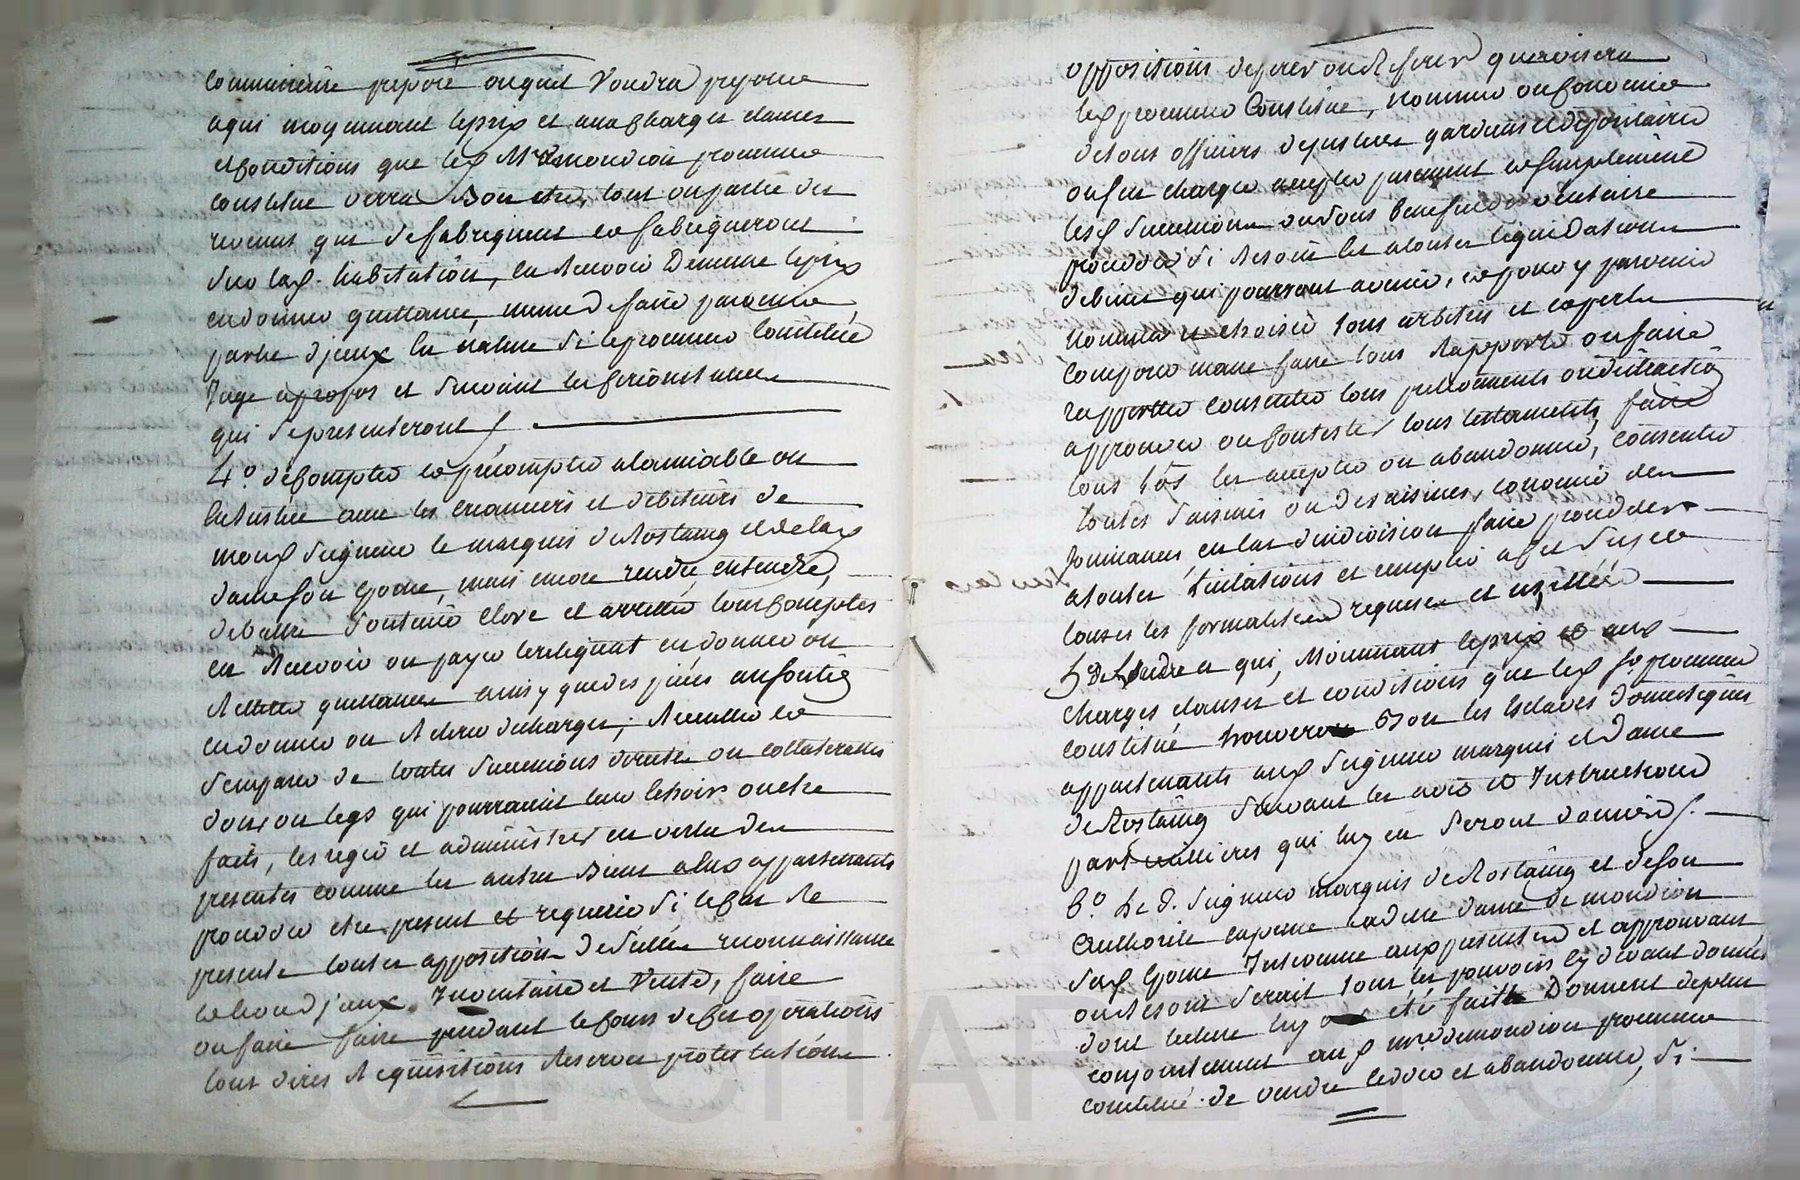 commissaire preposé ou quil voudra preposer
a qui moyennant le prix et aux charges clauses
et conditions que led. Mr demondion procureur
constitué verra Bon etre, tout ou partie des
revenus qui se fabriquent et fabriqueront
sur lad. habitation, en Recevoir De meme le prix
en donner quittance, meme d faire
partie d'jceux en nature si le procureur constitué
Juge apropos et suivant les circonstances
qui se presenteront /.
4.º de compter et précompter alamiable ou
en Justice avec les creanciers et debiteurs de
mond Seigneur le marquis de Rostaing et de lad
dame son epouse, mais encore rendre entendre,
debattre soutenir clore et arretter tous comptes
en Recevoir ou payer le reliquat en donner ou
Retirer quittances ainsy que des pieces au soutien
en donner ou Retirer decharges; Recueillir et
s'emparer de toutes successions directes ou collateralles
dons ou legs qui pourraient leur echoir ou etre
faits, les regir et administrer en vertu des
presentes comme les autres Biens a eux appartenants
proceder etre present et requerir si le cas se
presente toutes apposition de scellés reconnaissance
et levée d'jceux. Inventaire et Vente, faire
ou faire faire pendant le cours de ces operations
tous dires Requisitions Reserves protestations
oppositions deferer ou Referer quavisera
led procureur Constitué, nommer ou convenir
de tous officiers de justice gardiens et depositaires
ou sen charger accepter purement et simplement
lesd successions ou sous benefice d'inventaire
proceder si besoin est a toutes liquidations
de biens qui pourront avenir, et pour y parvenir
nommer et choisir tous arbitres et experts
comme faire tous Rapports ou faire
rapporter consentir tous prelevements ou distraction
approuver ou contester tous testaments, faire
tous lots les accepter ou abandonner, consentir
toutes saisines ou desaisines, convenir des
jouissances en cas d'indivision faire proceder
a toutes licitations et remplir a ce sujet
toutes les formalités requises et usitées
5.º de Vendre a qui, Moiennant le prix et aux
charges clauses et conditions que led. Sr procureur
constitué trouvera Bon les Esclaves Domestiques
appartenants aud Seigneur marquis et Dame
de Rostaing suivant les avis et Instructions
particulieres qui luy en seront données /.
6.º Le d. Seigneur marquis de Rostaing et de son
authorité expresse ladite dame de mondion
sad epouse Intervenue aux presentes et approuvant
ou besoin serait tous les pouvoirs cy devant donnés
dont lecture luy a été faitte Donnent de plus
conjointement aud mr demondion procureur
constitué de vendre ceder et abandonner, si